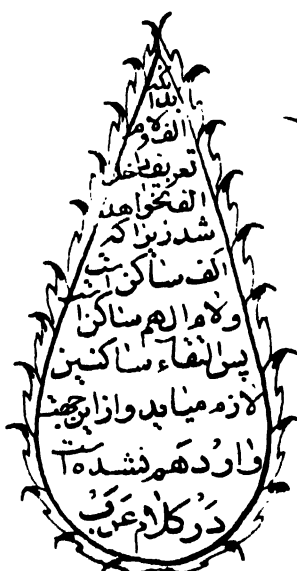 بدانکه
الف و لام
تعریف داخل
الف نخواهد
شد زیرا که
الف ساکن است
و لام ال هم ساکن است
پس التقاء ساکنین
لازم میاید و از این جهت
وارد هم نشده است
در کلام عرب